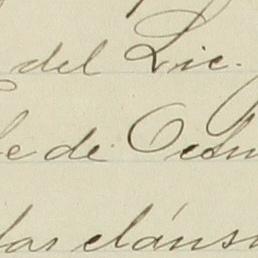 del Lic.
de Octu
las cláusu